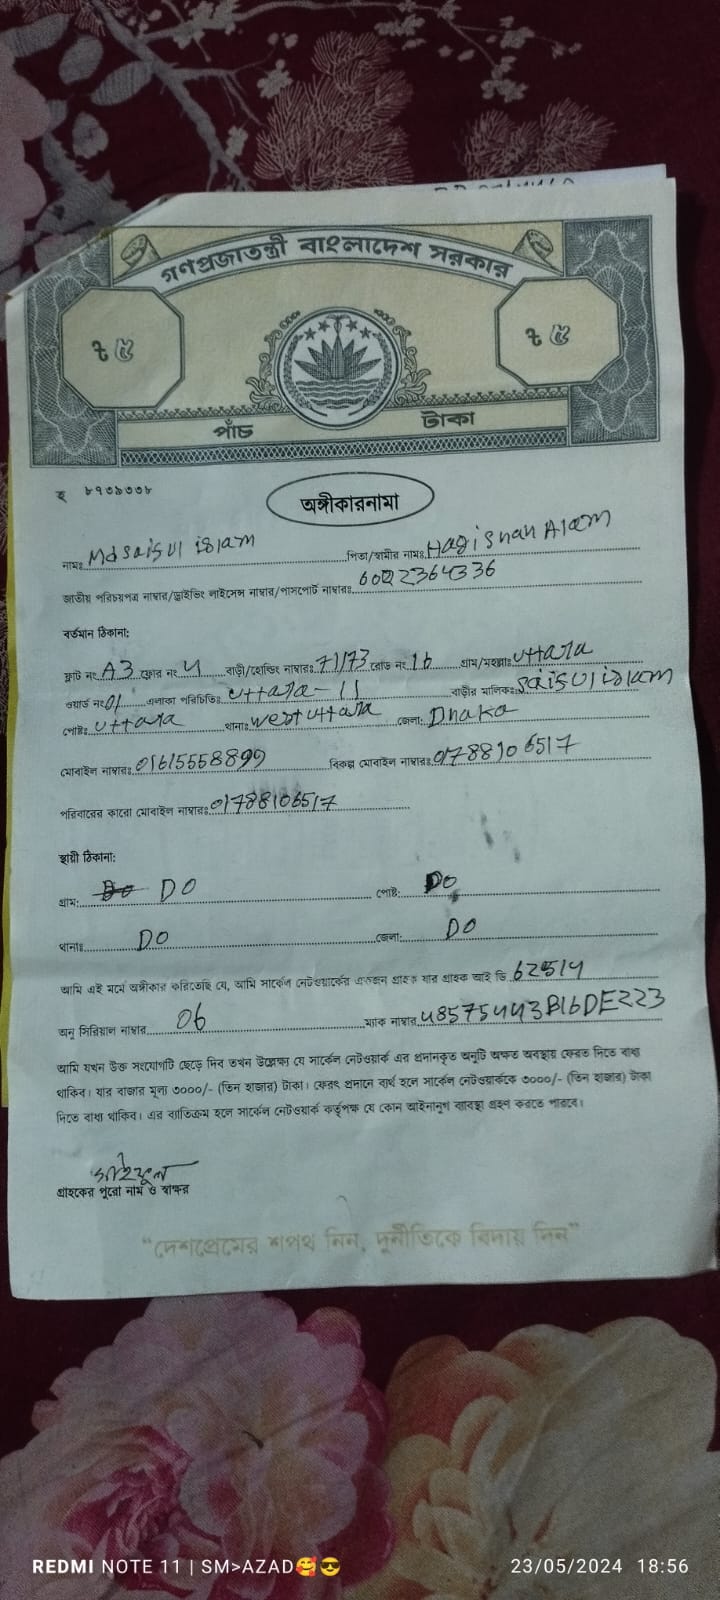 গণপ্রজাতন্ত্রী বাংলাদেশ সরকার
৳ ৫ ৳ ৫
পাঁচ টাকা
হ ৮৭৩৯৩৩৮
অঙ্গীকারনামা
নামঃ Md saisul islam পিতা/স্বামীর নামঃ Hagi Shah Alam
জাতীয় পরিচয়পত্র নাম্বার/ড্রাইভিং লাইসেন্স নাম্বার/পাসপোর্ট নাম্বারঃ 6002364336
বর্তমান ঠিকানা:
ফ্লাট নং A3 ফ্লোর নং 4 বাড়ী/হোল্ডিং নাম্বারঃ 71/73 রোড নং 16 গ্রাম/মহল্লাঃ Uttara
ওয়ার্ড নং 01 এলাকা পরিচিতিঃ Uttara-11 বাড়ীর মালিকঃ Saisul islam
পোষ্টঃ Uttara থানাঃ West Uttara জেলা: Dhaka
মোবাইল নাম্বারঃ 01615558899 বিকল্প মোবাইল নাম্বারঃ 01788106517
পরিবারের কারো মোবাইল নাম্বারঃ 01788106517
স্থায়ী ঠিকানা:
গ্রাম: DO পোষ্ট: DO
থানাঃ DO জেলা: DO
আমি এই মর্মে অঙ্গীকার করিতেছি যে, আমি সার্কেল নেটওয়ার্কের একজন গ্রাহক যার গ্রাহক আই ডি
অনু সিরিয়াল নাম্বার 06 ম্যাক নাম্বার 48575443B16DE223
আমি যখন উক্ত সংযোগটি ছেড়ে দিব তখন উল্লেক্ষ্য যে সার্কেল নেটওয়ার্ক এর প্রদানকৃত অনুটি অক্ষত অবস্থায় ফেরত দিতে বাধ্য
থাকিব। যার বাজার মূল্য ৩০০০/- (তিন হাজার) টাকা। ফেরৎ প্রদানে ব্যর্থ হলে সার্কেল নেটওয়ার্ককে ৩০০০/- (তিন হাজার) টাকা
দিতে বাধ্য থাকিব। এর ব্যতিক্রম হলে সার্কেল নেটওয়ার্ক কর্তৃপক্ষ যে কোন আইনানুগ ব্যবস্থা গ্রহণ করতে পারবে।
সাইফুল
গ্রাহকের পুরো নাম ও স্বাক্ষর
“দেশপ্রেমের শপথ নিন, দুর্নীতিকে বিদায় দিন”
REDMI NOTE 11 | SM>AZAD🥰😎 23/05/2024 18:56